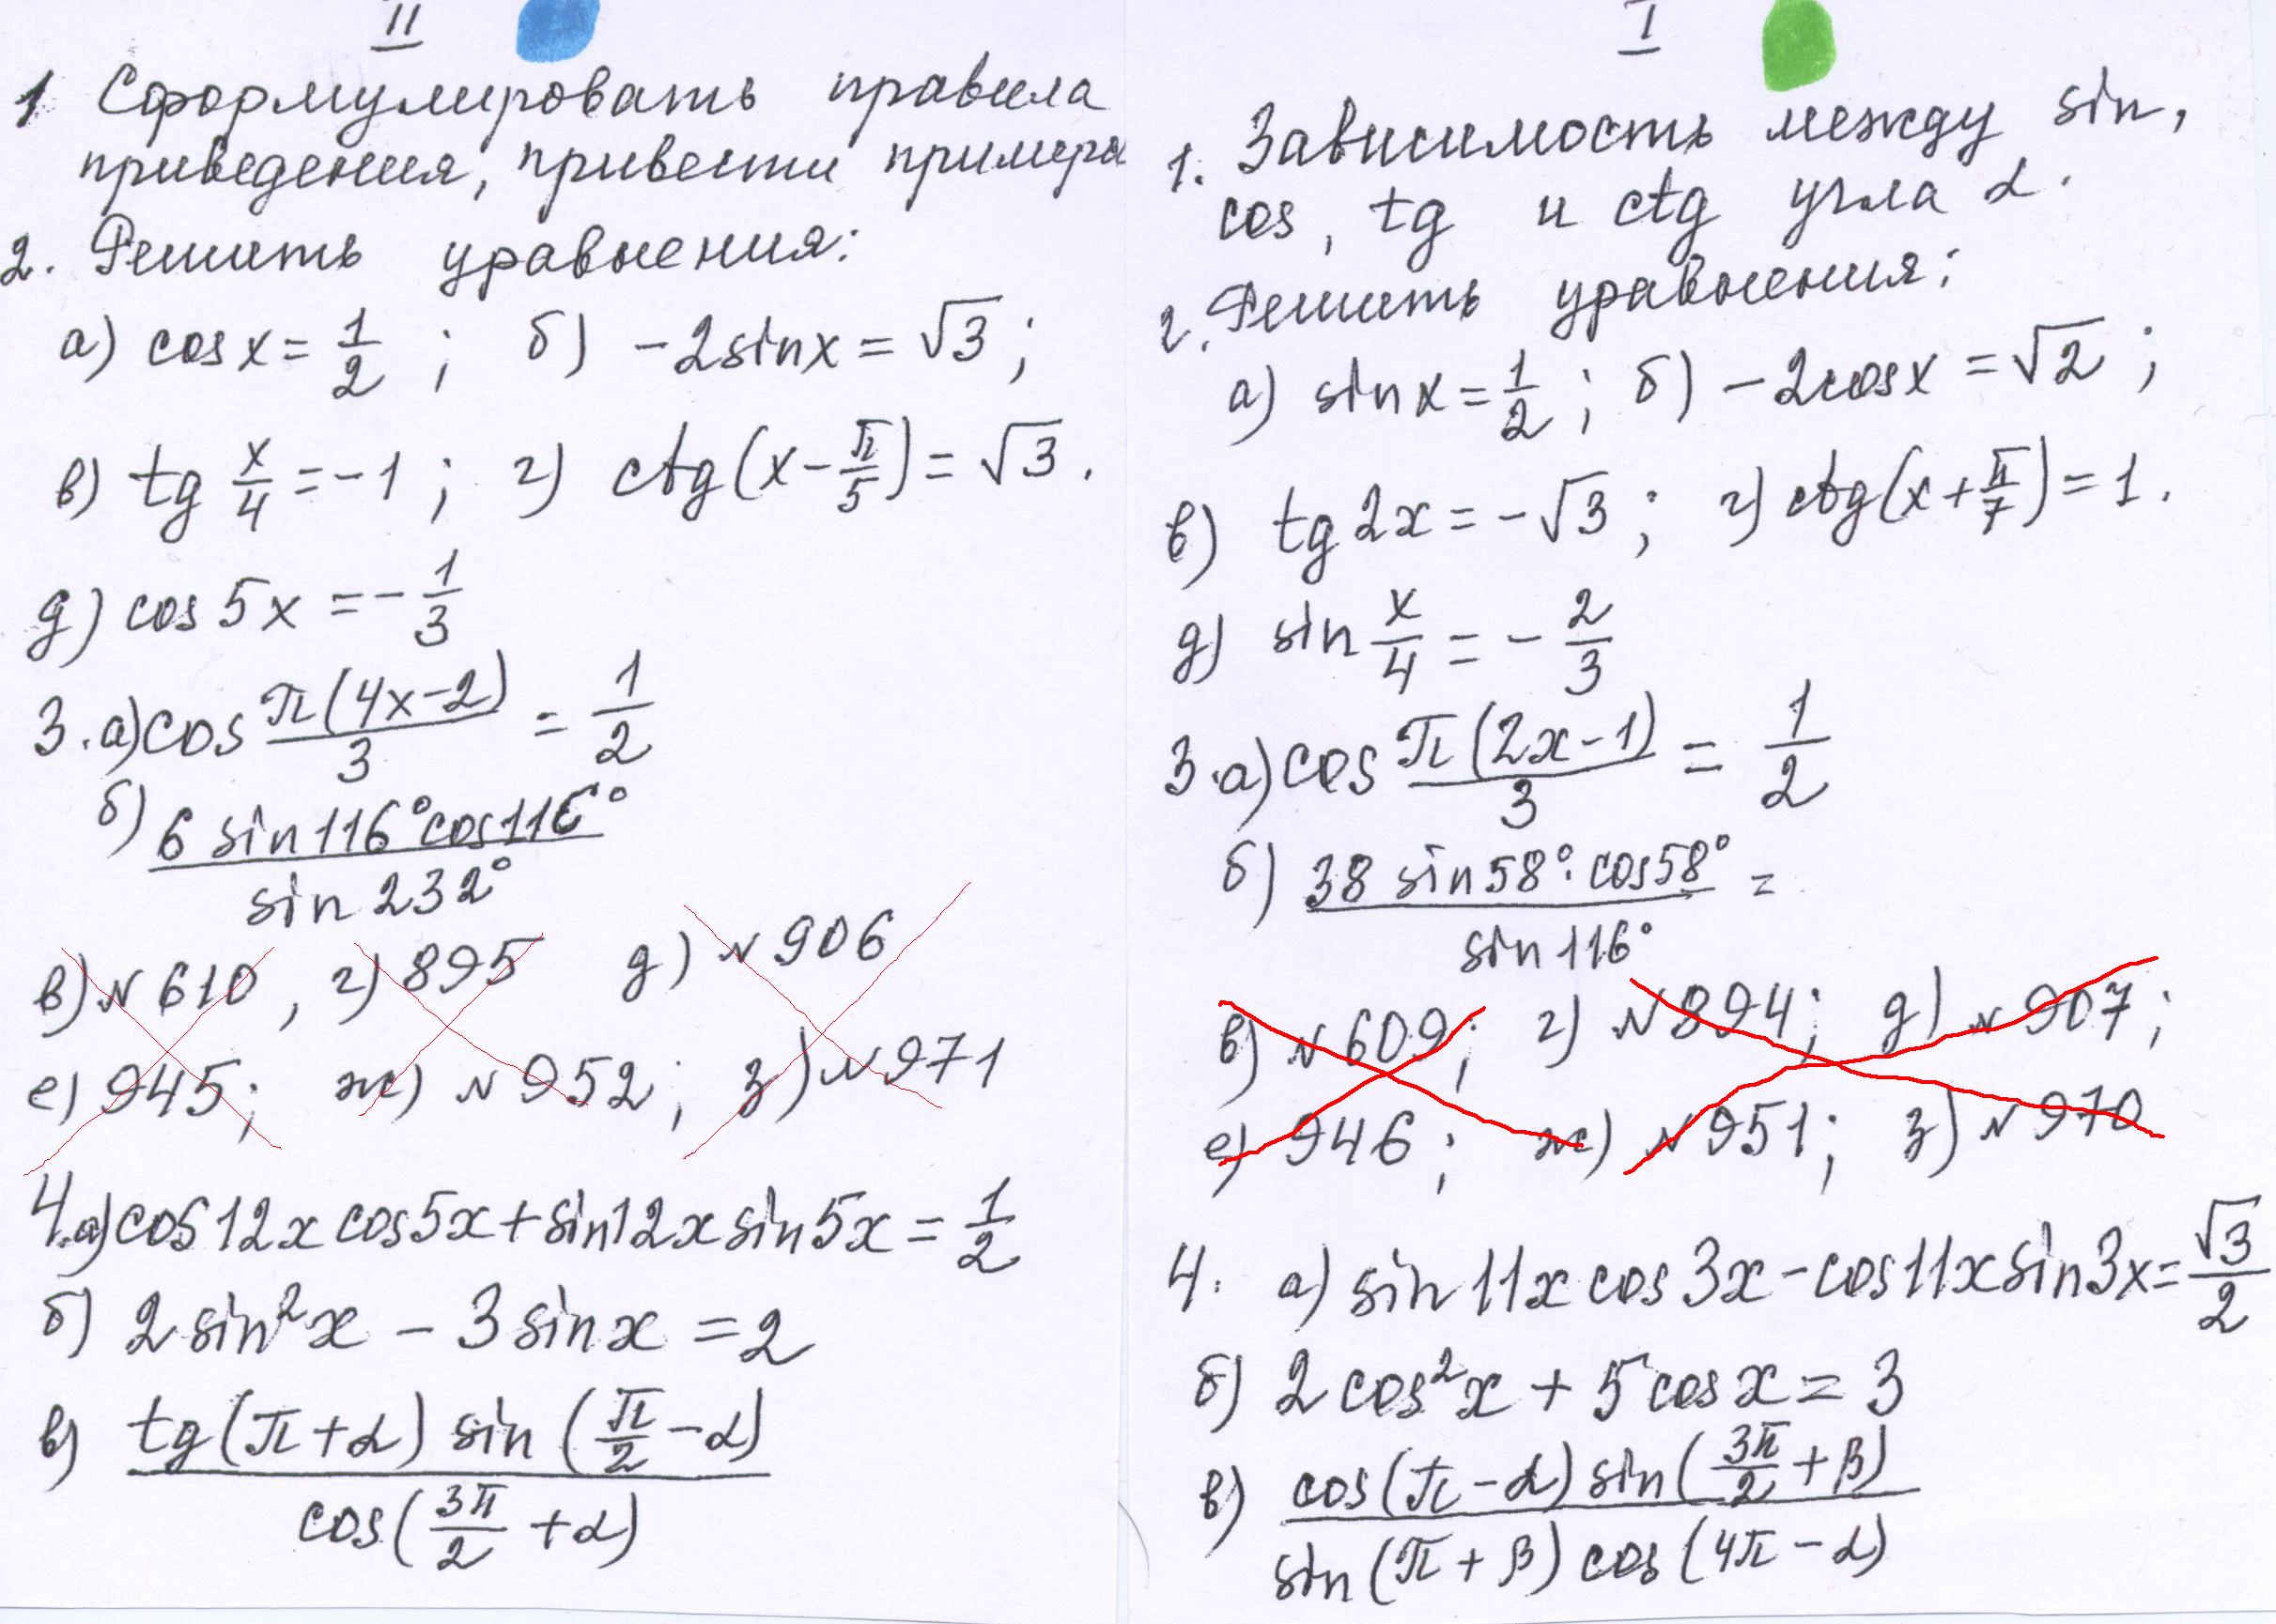 II
1. Сформулировать правила
приведения, привести примеры
2. Решить уравнения:
а) cos x = 1/2 ; б) -2 sin x = √3 ;
в) tg x/4 = -1 ; г) ctg(x - π/5) = √3 .
д) cos 5x = - 1/3
3. а) cos π(4x-2)/3 = 1/2
б) 6 sin 116° cos 116° / sin 232°
в) №610 , г) 895 д) №906
е) 945 ; ж) №952 ; з) №971
4. а) cos 12x cos 5x + sin 12x sin 5x = 1/2
б) 2 sin²x - 3 sin x = 2
в) tg(π+α) sin(π/2 - α) / cos(3π/2 + α)
I
1. Зависимость между sin,
cos, tg и ctg угла α.
2. Решить уравнения:
а) sin x = 1/2 ; б) -2 cos x = √2 ;
в) tg 2x = -√3 ; г) ctg(x + π/7) = 1 .
д) sin x/4 = - 2/3
3. а) cos π(2x-1)/3 = 1/2
б) 38 sin 58° · cos 58° / sin 116° =
в) №609 ; г) №894 ; д) №907 ;
е) 946 ; ж) №951 ; з) №970
4. а) sin 11x cos 3x - cos 11x sin 3x = √3/2
б) 2 cos²x + 5 cos x = 3
в) cos(π-α) sin(3π/2 + β) / sin(π+β) cos(4π-α)